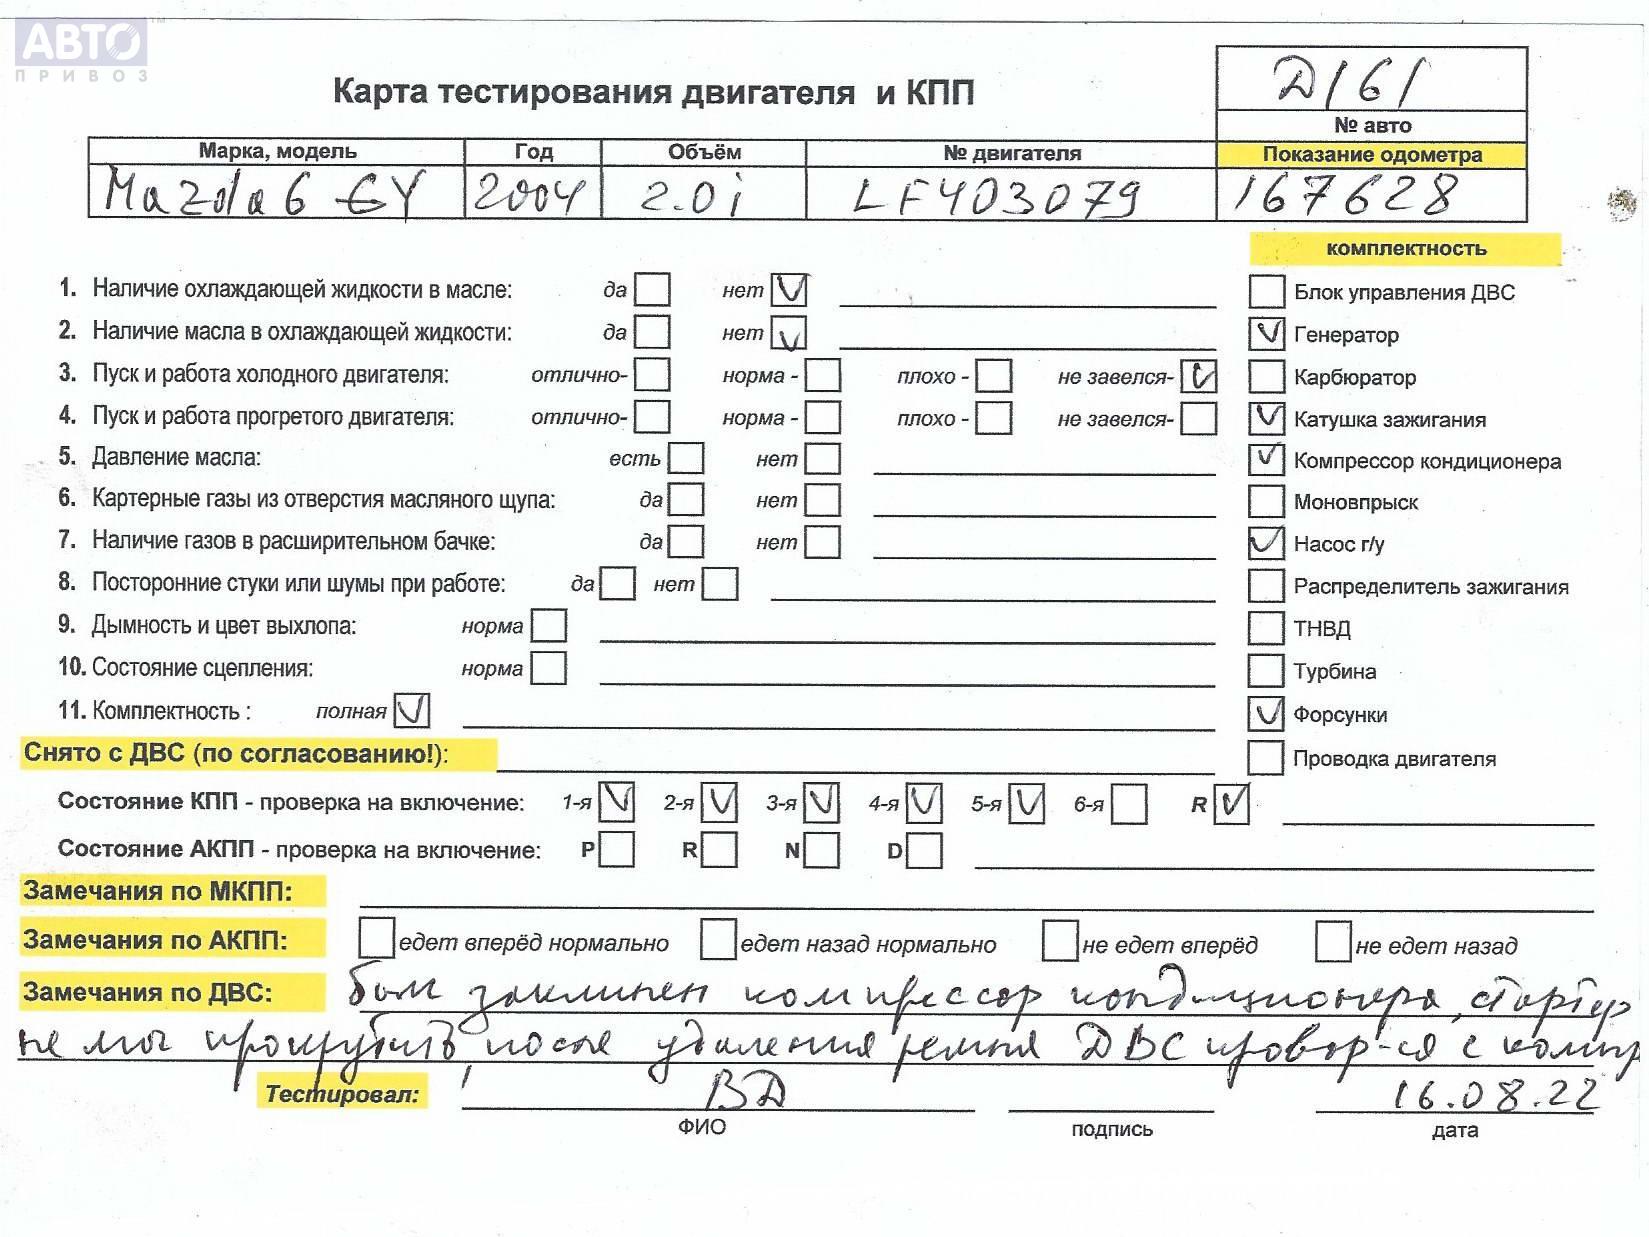 АВТО™
ПРИВОЗ
Карта тестирования двигателя и КПП
D161
№ авто
Марка, модель Год Объём № двигателя Показание одометра
Mazda 6 GY 2004 2.0i LF403079 167628
комплектность
1. Наличие охлаждающей жидкости в масле: да нет V
Блок управления ДВС
2. Наличие масла в охлаждающей жидкости: да нет V
V Генератор
3. Пуск и работа холодного двигателя: отлично- норма - плохо - не завелся- V
Карбюратор
4. Пуск и работа прогретого двигателя: отлично- норма - плохо - не завелся-
V Катушка зажигания
5. Давление масла: есть нет
V Компрессор кондиционера
6. Картерные газы из отверстия масляного щупа: да нет
Моновпрыск
7. Наличие газов в расширительном бачке: да нет
V Насос г/у
8. Посторонние стуки или шумы при работе: да нет
Распределитель зажигания
9. Дымность и цвет выхлопа: норма
ТНВД
10. Состояние сцепления: норма
Турбина
11. Комплектность : полная V
V Форсунки
Снято с ДВС (по согласованию!):
Проводка двигателя
Состояние КПП - проверка на включение: 1-я V 2-я V 3-я V 4-я V 5-я V 6-я R V
Состояние АКПП - проверка на включение: P R N D
Замечания по МКПП:
Замечания по АКПП: едет вперёд нормально едет назад нормально не едет вперёд не едет назад
Замечания по ДВС: был заклинен компрессор кондиционера, стартер
не мог прокрутить, после удаления ремня ДВС провор-ся с компр
Тестировал: ВД 16.08.22
ФИО подпись дата